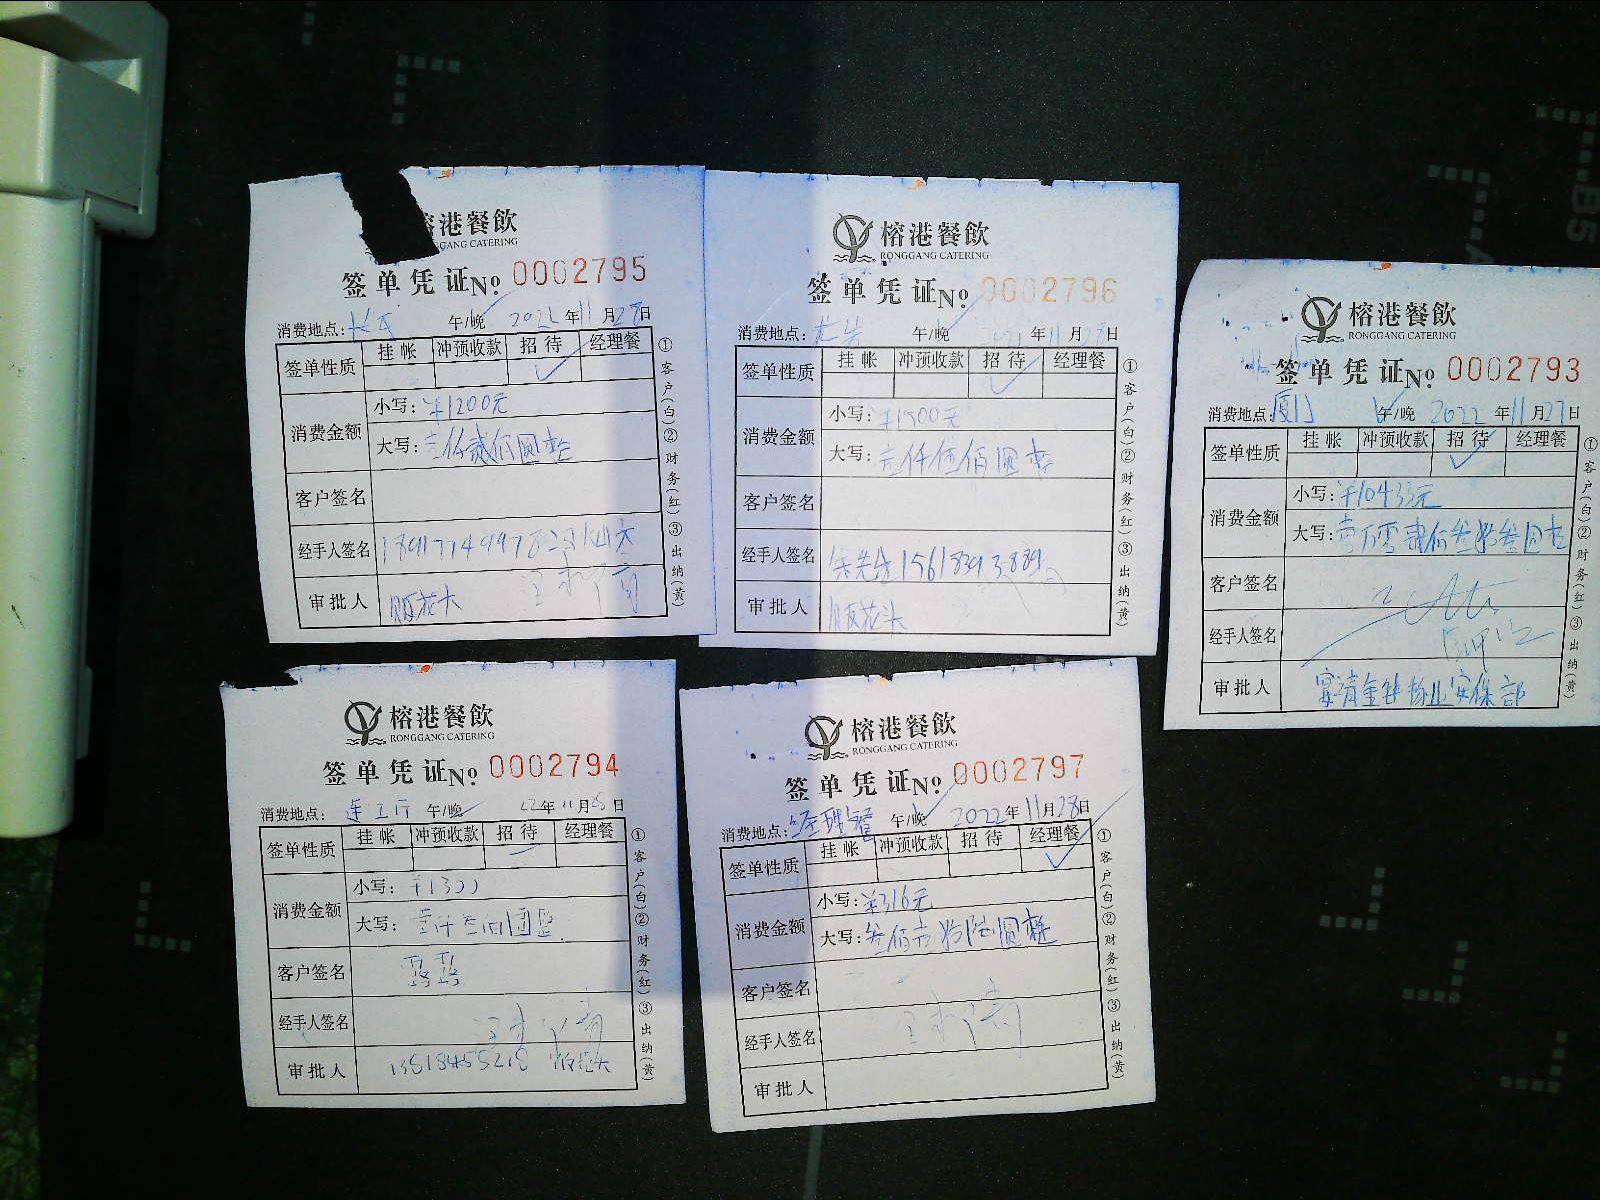 港餐飲
GANG CATERING
签单凭证No 0002795
消费地点: 午/晚 2022年11月27日
签单性质 挂帐 冲预收款 招待 经理餐
消费金额 小写: ¥1200元
大写: 壹仟贰佰圆整
客户签名
经手人签名 18917749978
审批人
①客户(白)②财务(红)③出纳(黄)
榕港餐飲
RONGGANG CATERING
签单凭证No 0002796
消费地点: 午/晚 年11月日
签单性质 挂帐 冲预收款 招待 经理餐
消费金额 小写: ¥1500元
大写: 壹仟伍佰圆整
客户签名
经手人签名 朱先生15618393889
审批人
①客户(白)②财务(红)③出纳(黄)
榕港餐飲
RONGGANG CATERING
签单凭证No 0002793
消费地点: 厦门 午/晚 2022年11月27日
签单性质 挂帐 冲预收款 招待 经理餐
消费金额 小写: ¥10433元
大写: 壹万零肆佰叁拾叁圆整
客户签名
经手人签名
审批人
①客户(白)②财务(红)③出纳(黄)
榕港餐飲
RONGGANG CATERING
签单凭证No 0002794
消费地点: 午/晚 22年11月日
签单性质 挂帐 冲预收款 招待 经理餐
消费金额 小写: ¥1300
大写: 壹仟叁佰圆整
客户签名 露露
经手人签名
审批人 13818455218
①客户(白)②财务(红)③出纳(黄)
榕港餐飲
RONGGANG CATERING
签单凭证No 0002797
消费地点: 经理餐 午/晚 2022年11月28日
签单性质 挂帐 冲预收款 招待 经理餐
消费金额 小写: ¥316元
大写: 叁佰壹拾陆圆整
客户签名
经手人签名
审批人
①客户(白)②财务(红)③出纳(黄)
B5
A